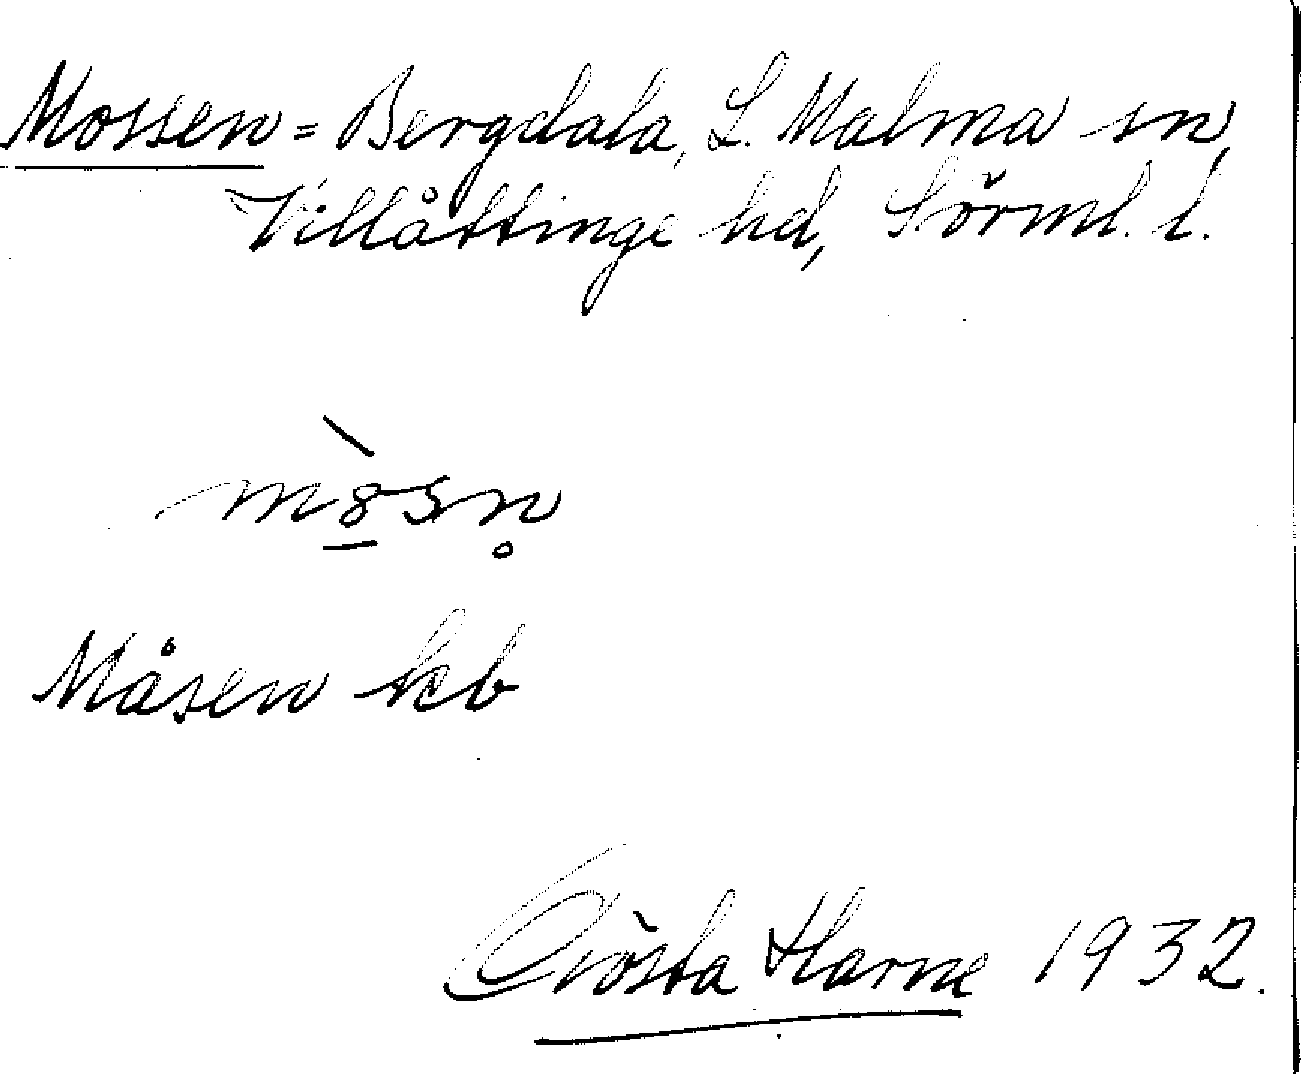 Mossen = Bergdala, L. Malma sn,
Villåttinge hd, Sörml. l.
Måsen kb
Gösta Harne 1932.